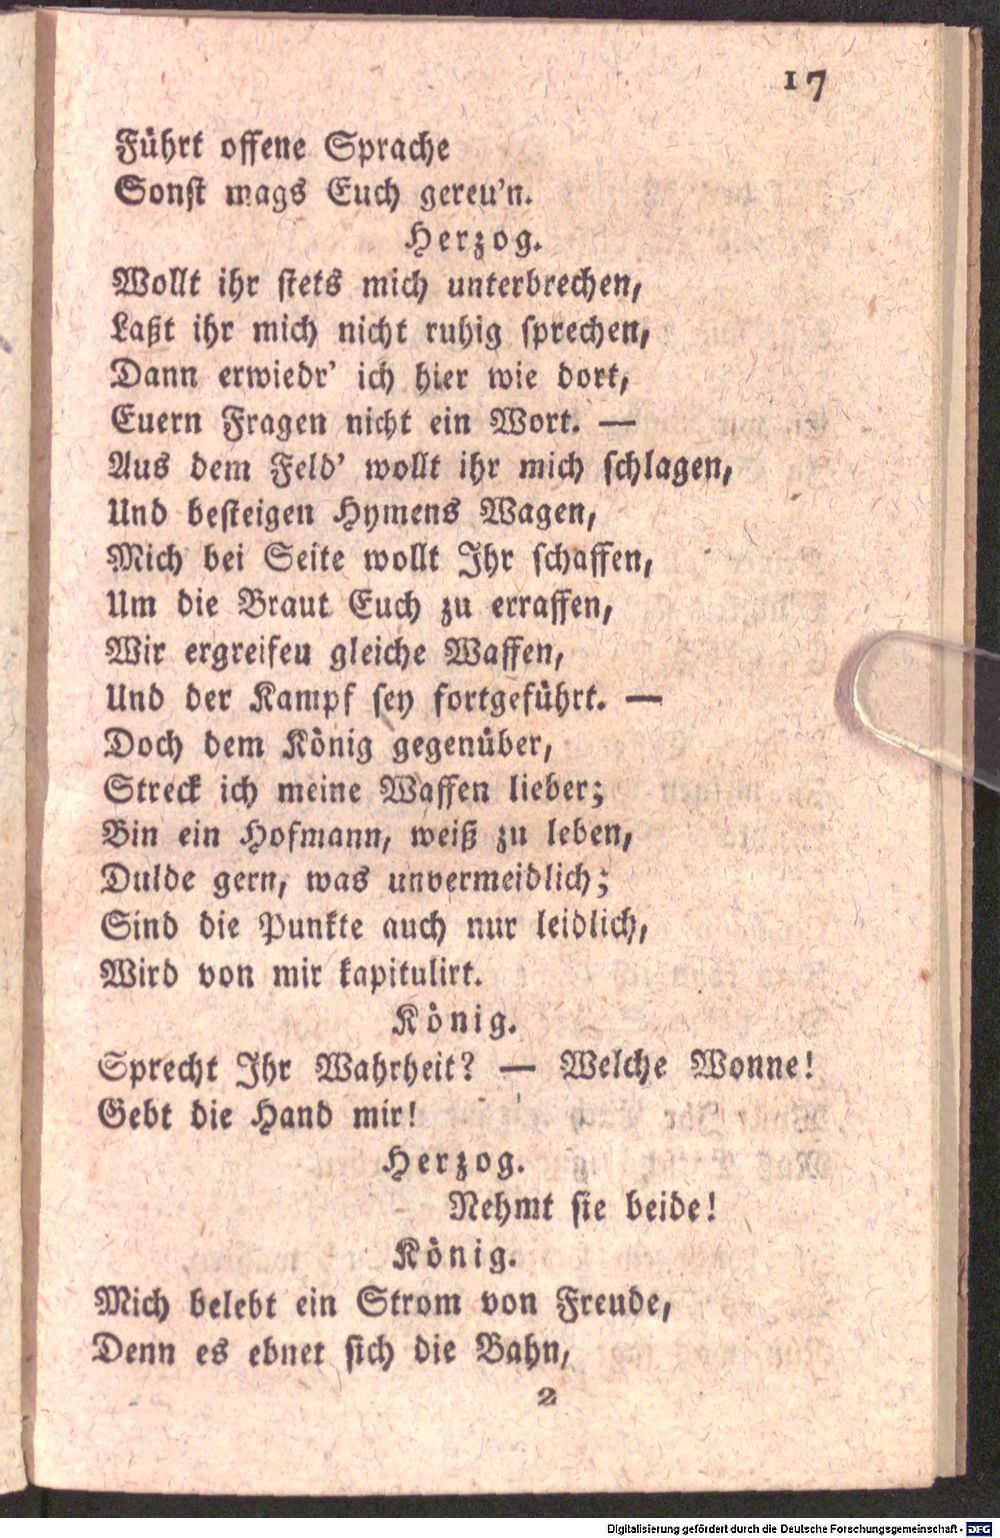 17
Führt offene Sprache
Sonst mags Euch gereu'n.
Herzog.
Wollt ihr stets mich unterbrechen,
Laßt ihr mich nicht ruhig sprechen,
Dann erwiedr' ich hier wie dort,
Euern Fragen nicht ein Wort. —
Aus dem Feld' wollt ihr mich schlagen,
Und besteigen Hymens Wagen,
Mich bei Seite wollt Ihr schaffen,
Um die Braut Euch zu erraffen,
Wir ergreifeu gleiche Waffen,
Und der Kampf sey fortgeführt. —
Doch dem König gegenüber,
Streck ich meine Waffen lieber;
Bin ein Hofmann, weiß zu leben,
Dulde gern, was unvermeidlich;
Sind die Punkte auch nur leidlich,
Wird von mir kapitulirt.
König.
Sprecht Ihr Wahrheit? — Welche Wonne!
Gebt die Hand mir!
Herzog.
Nehmt sie beide!
König.
Mich belebt ein Strom von Freude,
Denn es ebnet sich die Bahn,
2
Digitalisierung gefördert durch die Deutsche Forschungsgemeinschaft - DFG